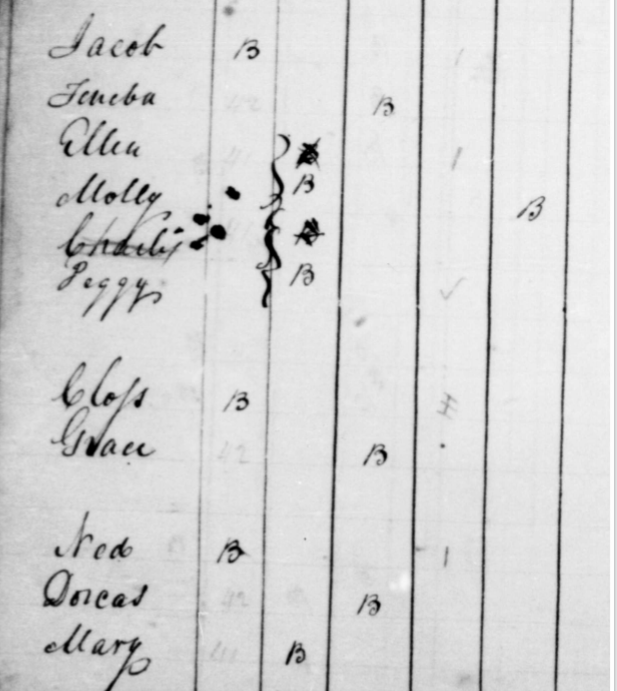 Jacob B 1
Feneba B
Ellen B 1
Molly B B
Charly B
Peggy B ✓
Closs B #
Grace 42 B
Ned B 1
Dorcas 42 B
Mary B